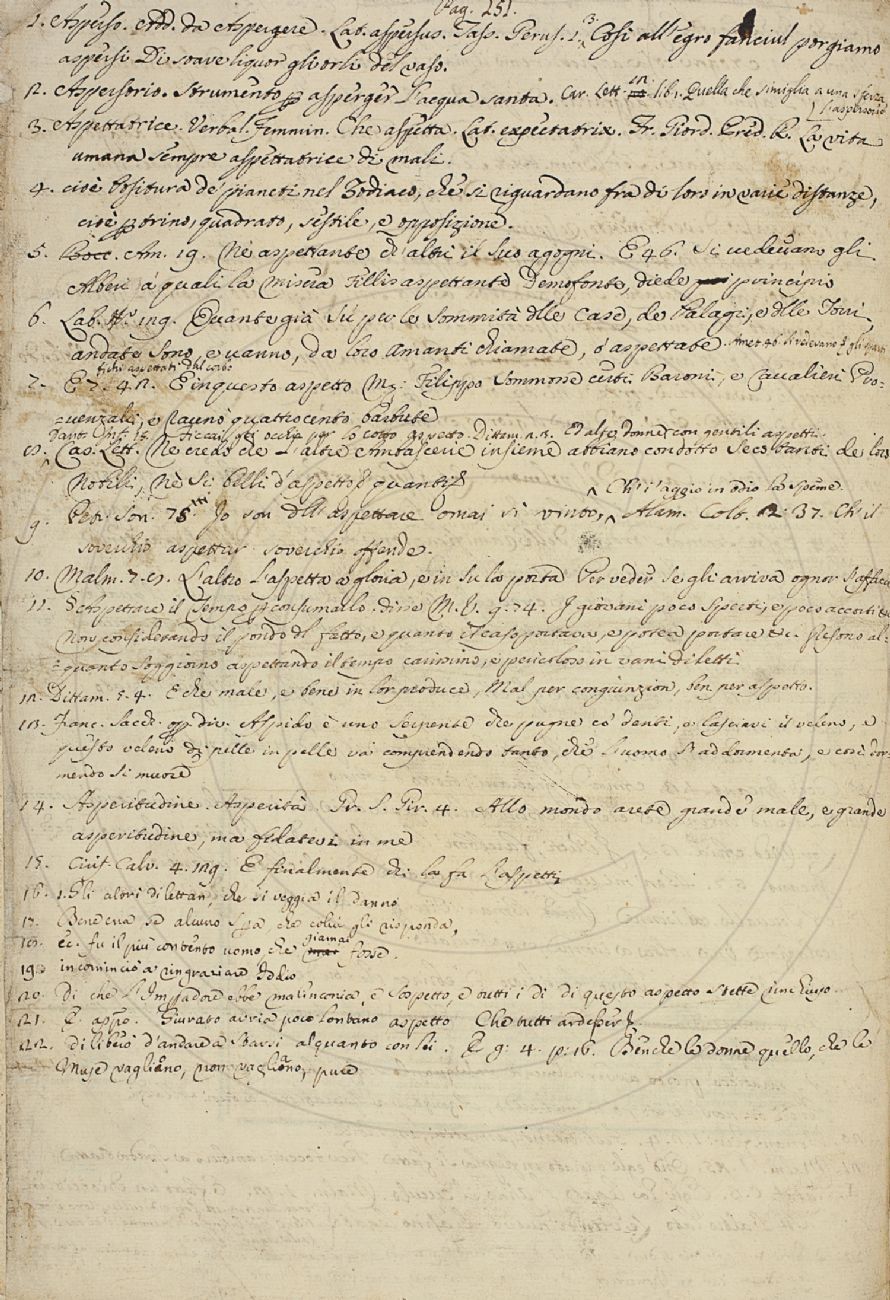 Pag. 151.
1. Asperso. Add. da Aspergere. Lat. aspersus. Tass. Gerus. 1. 3. Così all'egro fanciul porgiamo
aspersi Di soave liquor gli orli del vaso.
2. Aspersorio. Strumento p asperger l'acqua santa. Car. Lett. in lib. 1. Quella che simiglia a una sferza
l'aspersorio
3. Aspettatrice. Verbal. Femmin. Che aspetta. Lat. expectatrix. Fr. Giord. Pred. R. La vita
umana sempre aspettatrice di mali.
4. cioè Positura de' pianeti nel Zodiaco, che si riguardano fra di loro in varie distanze,
cioè p trino, quadrato, sestile, e opposizione.
5. Bocc. Am. 19. Nè aspettante ch'altri il suo agogni. E 46. Si vedevano gli
Alberi a' quali la misera Fillis aspettante Demofonte, diede principio
6. Lab. 129. Quante già su per le sommità dlle Case, de' Palagi, e dlle Torri,
andate sono, e vanno, da loro amanti chiamate, o aspettate. Amet. 46. Si vedevano
fichi aspettati dal corbo
7. E 7. 42. E in questo aspetto M. Filippo sommosse certi Baroni, e Cavalieri Pro-
venzali, e raunò quattrocento barbute
Dante Inf. 15. Ficcai gli occhi per lo cotto aspetto. Dittam. 2. 3. Ed alte donne con gentili aspetti
8. Cas. Lett. Nè credo che l'altre Ambascerie insieme abbiano condotto seco tanti de' loro
Nobili, nè sì belli d'aspetto quanti
^ Ch'i' aggio in odio la speme.
9. Petr. Son. 75. Io son dll'aspettare omai sì vinto, ^ Alam. Colt. 2. 37. Ch'il
soverchio aspettar soverchio offende.
10. Malm. 7. 9. L'altro l'aspetta a gloria, e in su la porta Per veder se gli arriva ognor s'affaccia
11. § Aspettare il Tempo p consumarlo. disse M. V. 9. 74. I giovani poco sperti, e poco accorti &c
non considerando il pondo dl fatto, e quanto il caso portava, e potea portare &c. presono al-
quanto soggiorno aspettando il tempo carissimo, e pericoloso in vani diletti.
12. Dittam. 5. 4. E che male, e bene in lor produce, Mal per congiunzion, ben per aspetto.
13. Franc. Sacch. opp. div. Aspido è uno serpente che pugne co' denti, e lasciavi il veleno, e
questo veleno di pelle in pelle va comprendendo tanto, che l'uomo s'addormenta, e così dor-
mendo si muore
14. Asperitudine. Asperità. Gr. S. Gir. 4. Allo mondo arete grande male, e grande
asperitudine, ma fidatevi in me
15. Ciriff. Calv. 4. 129. E finalmente chi la fa l'aspetti
16. 1. Gli altri dilettan, che si veggia il danno
17. Bene era se alcuno spa, che colui gli risponda,
18. ec. fu il più contento uomo, che giamai fosse.
19. incominciò a ringraziare Iddio
20. Di che l'Impadore ebbe malinconia, e sospetto, e tutti i dì di questo aspetto stette rinchiuso.
21. E. appo. Giurato avria poco lontano aspetto Che tutti ardesser
22. Diliberò d'andare a starsi alquanto con lei. E g. 4. p. 16. Benchè le donne quello, che le
Muse vagliono, non vagliano, pure